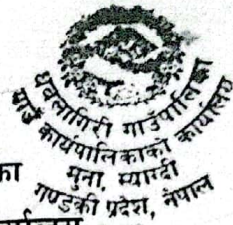 धवलागिरी गाउँपालिका
गाउँ कार्यपालिकाको कार्यालय
मुना, म्याग्दी
गण्डकी प्रदेश, नेपाल
का